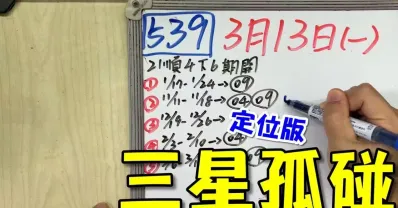 539 3月13日(一)
21順4下6期開
① 11/17- 11/24→09
② 11/11- 11/18→04 09
③ 12/19- 12/26→
2/3- 2/10→04
定位版
三星孤碰